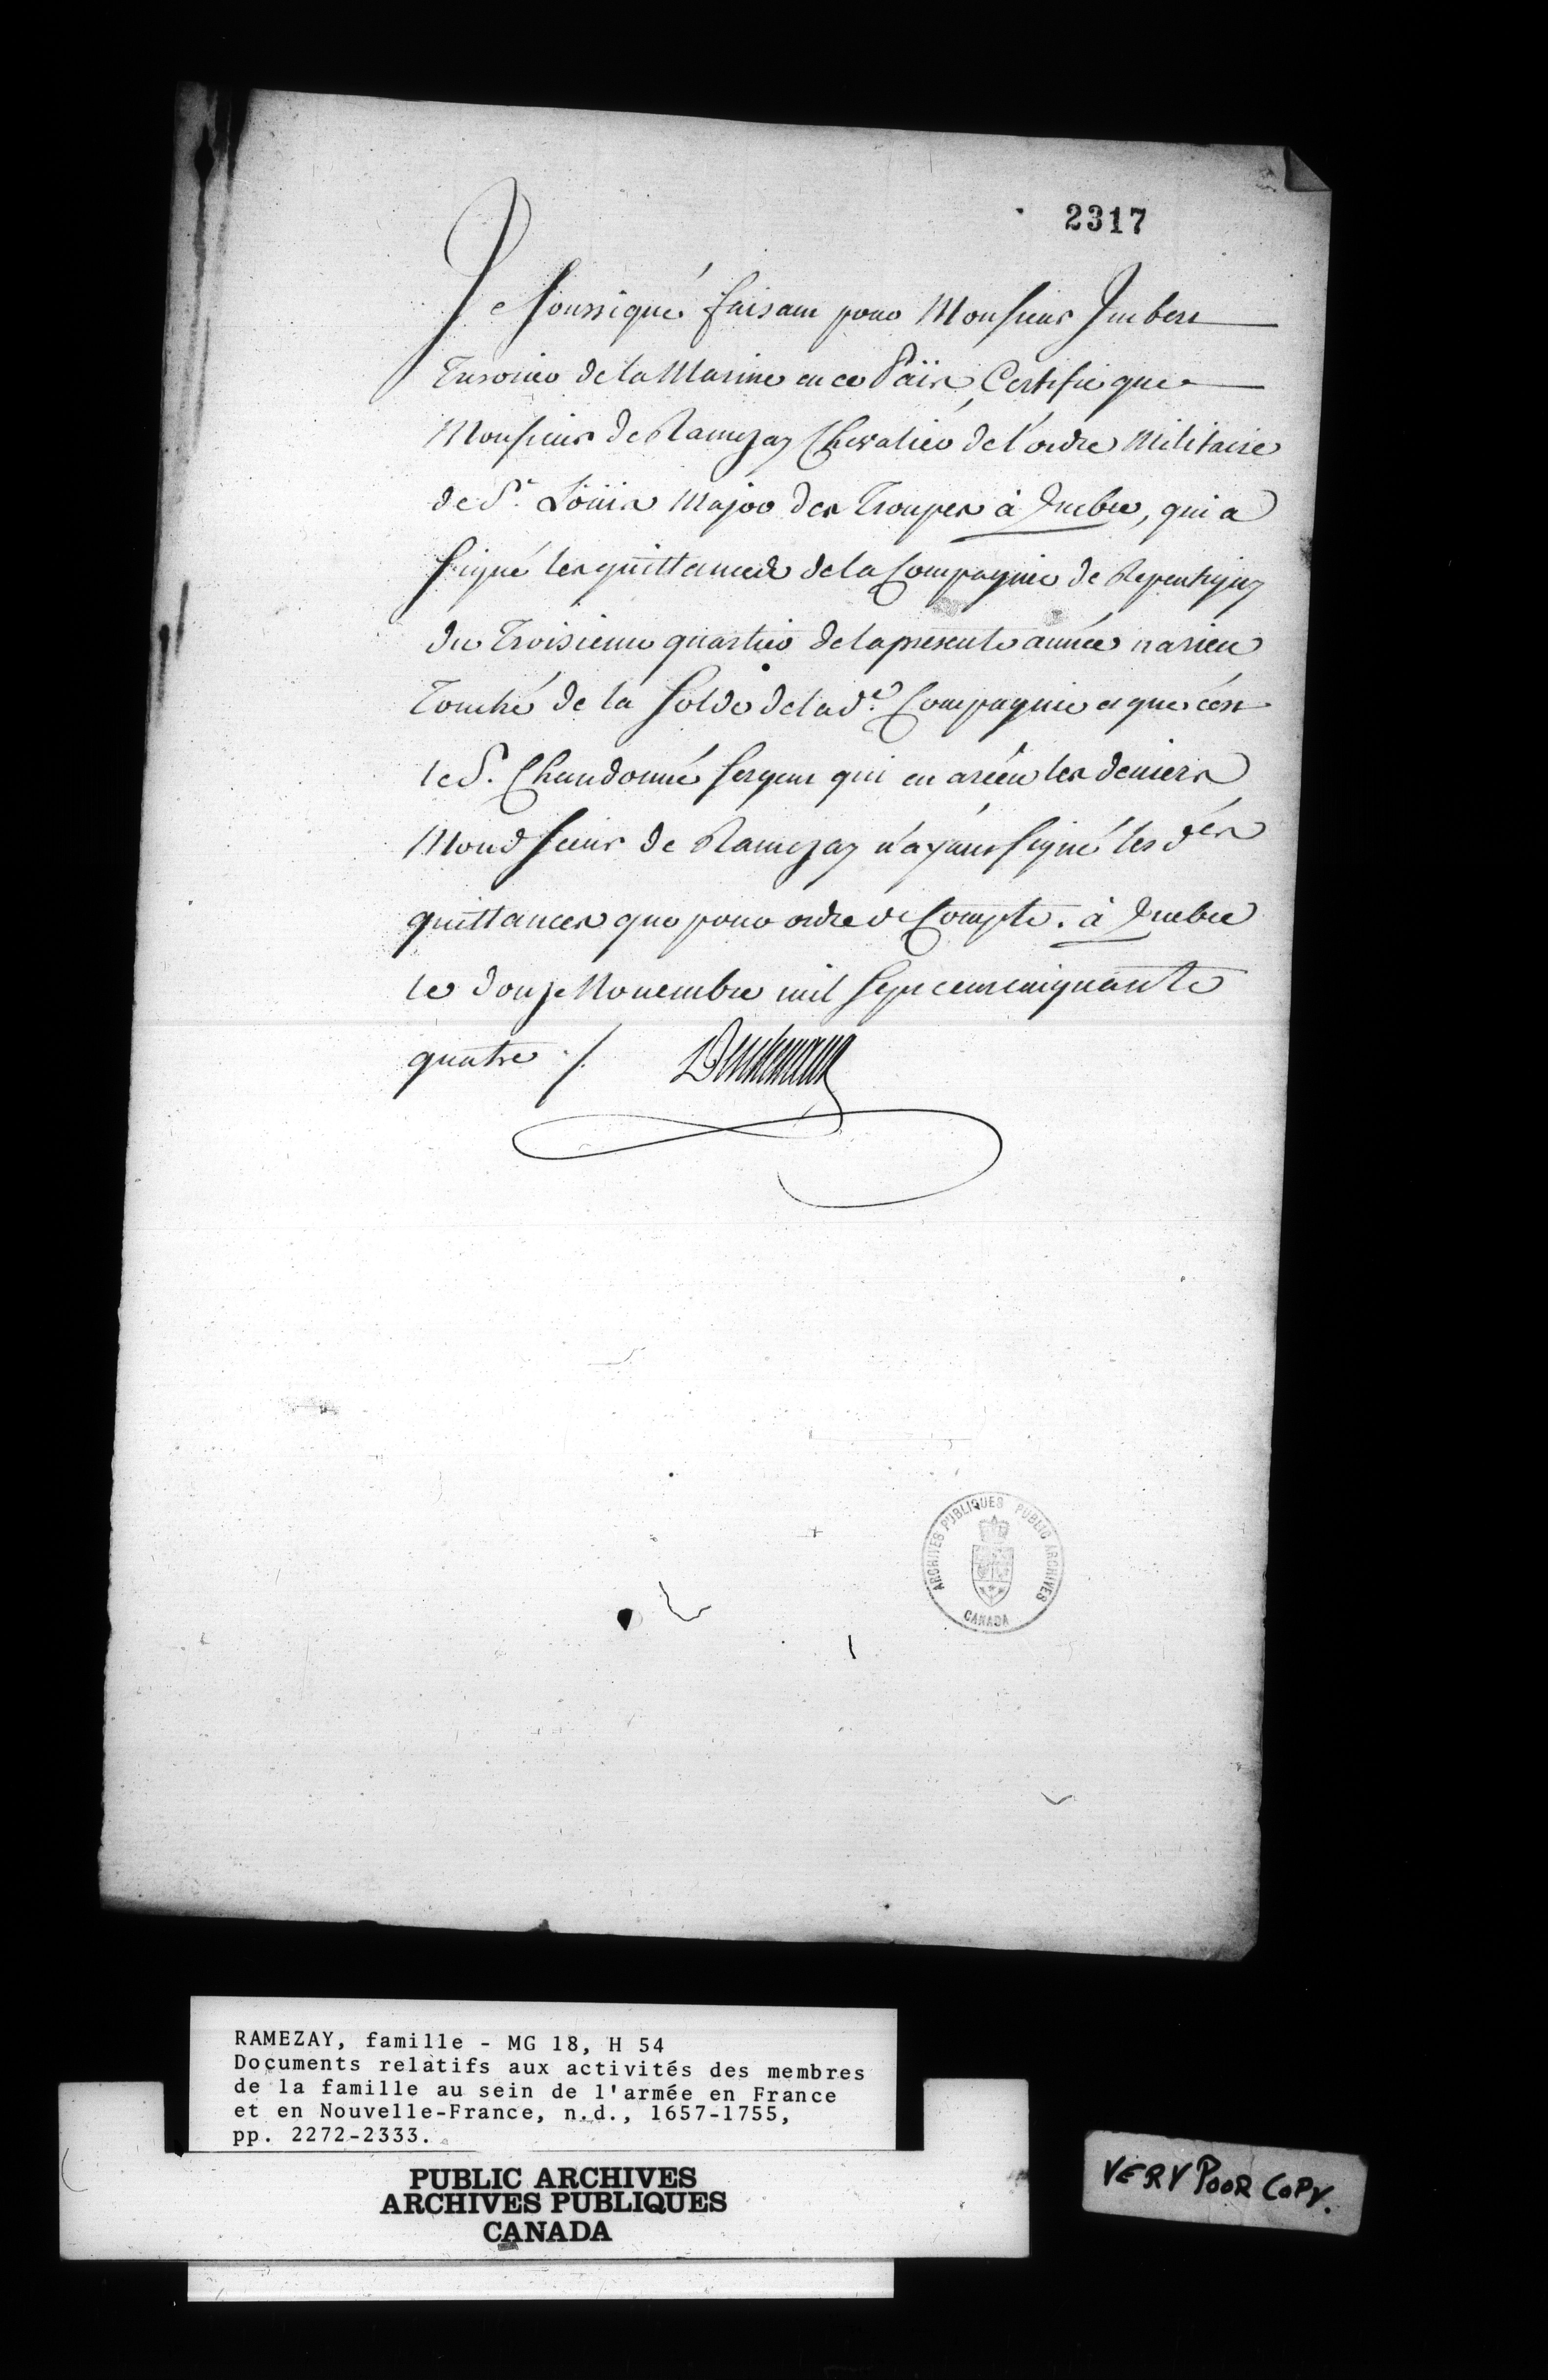 2317
Je soussigné faisant pour Monsieur Imbert
Tresorier de la Marine en ce Païs, Certifie que
Monsieur de Ramezay Chevalier de l'ordre Militaire
de St. Loüis Major des Troupes à Quebec, qui a
signé les quittances de la Compagnie de Repentigny
du Troisieme quartier de la presente année n'a rien
Touché de la solde de lad.e Compagnie et que c'est
le S. Chandonné sergent qui en a réçu les deniers
Mond Sieur de Ramezay n'ayant signé les d.es
quittances que pour ordre de Compte. à Quebec
le douze Novembre mil sept cent cinquante
quatre ./.
ARCHIVES PUBLIQUES PUBLIC ARCHIVES
CANADA
RAMEZAY, famille - MG 18, H 54
Documents relatifs aux activités des membres
de la famille au sein de l'armée en France
et en Nouvelle-France, n.d., 1657-1755,
pp. 2272-2333.
PUBLIC ARCHIVES
ARCHIVES PUBLIQUES
CANADA
VERY POOR COPY.